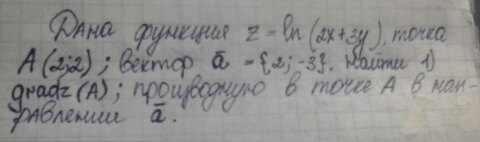 Дана функция z=ln(2x+3y), точка
A(2;2); вектор ā={2;-3}. Найти 1)
gradz(A); производную в точке A в нап-
равлении ā.